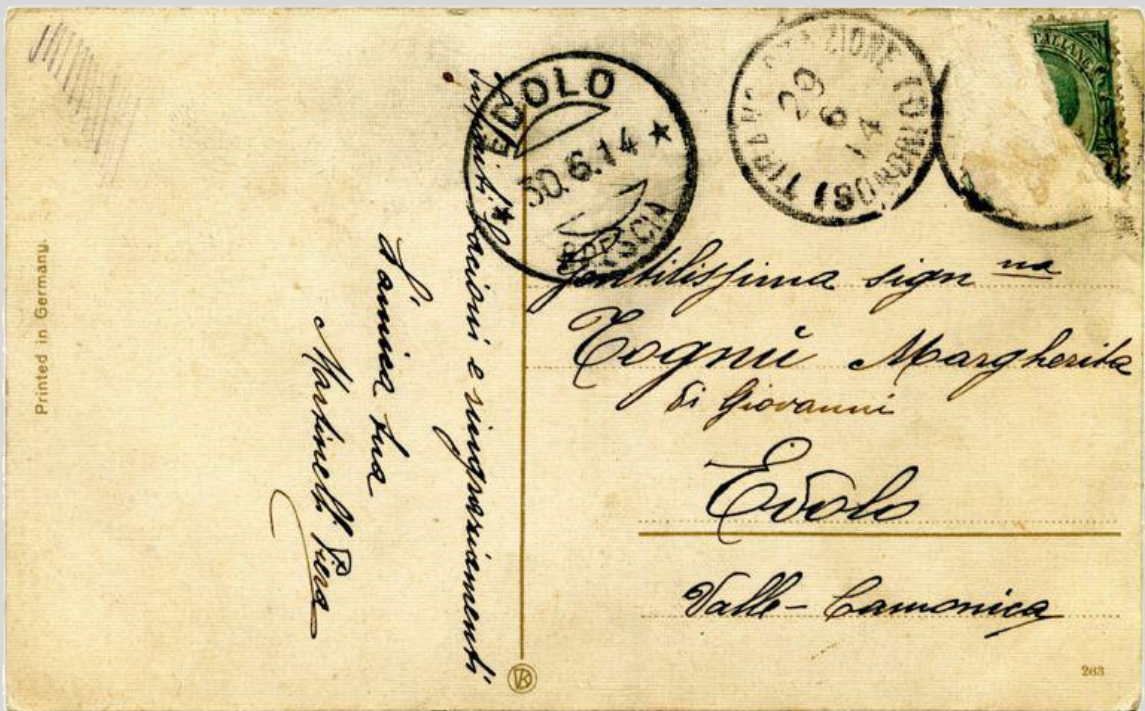 Printed in Germany.
Infiniti bacioni e ringraziamenti
L'amica tua
Martinelli Piera
EDOLO
30.6.14
BRESCIA
TIRANO STAZIONE (SONDRIO)
29
6
14
ITALIANE
Gentilissima sign na
Tognù Margherita
di Giovanni
Edolo
Valle-Camonica
263